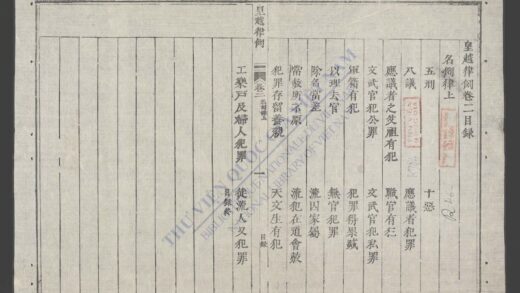 皇越律例卷二目錄
名例律上
五刑 十惡
八議 應議者犯罪
應議者之父祖有犯 職官有犯
文武官犯公罪 文武官犯私罪
軍籍有犯 犯罪得累減
以理去官 無官犯罪
除名當差 流囚家屬
常赦所不原 流犯在道會赦
犯罪存留養親 天文生有犯
皇越律例 卷二 一 目錄
工樂戶及婦人犯罪 徒流人又犯罪
目錄終
THƯ VIỆN QUỐC GIA VIỆT NAM
NATIONAL LIBRARY OF VIETNAM